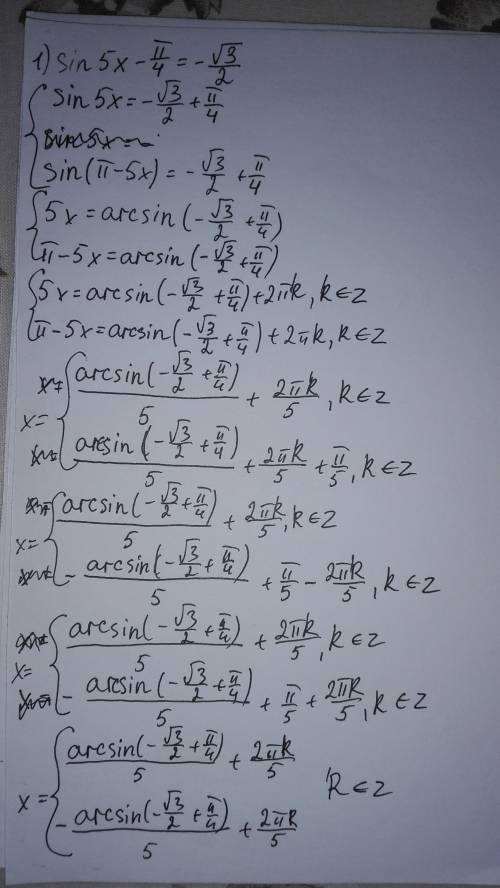 1) sin 5x - π/4 = -√3/2
{ sin 5x = -√3/2 + π/4
sin(π-5x) = -√3/2 + π/4
{ 5x = arcsin(-√3/2 + π/4)
π-5x = arcsin(-√3/2 + π/4)
{ 5x = arcsin(-√3/2 + π/4) + 2πk, k ∈ z
π-5x = arcsin(-√3/2 + π/4) + 2πk, k ∈ z
x = { arcsin(-√3/2 + π/4)/5 + 2πk/5, k ∈ z
arcsin(-√3/2 + π/4)/5 + 2πk/5 + π/5, k ∈ z
x = { arcsin(-√3/2 + π/4)/5 + 2πk/5, k ∈ z
- arcsin(-√3/2 + π/4)/5 + π/5 - 2πk/5, k ∈ z
x = { arcsin(-√3/2 + π/4)/5 + 2πk/5, k ∈ z
- arcsin(-√3/2 + π/4)/5 + π/5 + 2πk/5, k ∈ z
x = { arcsin(-√3/2 + π/4)/5 + 2πk/5
k ∈ z
- arcsin(-√3/2 + π/4)/5 + 2πk/5